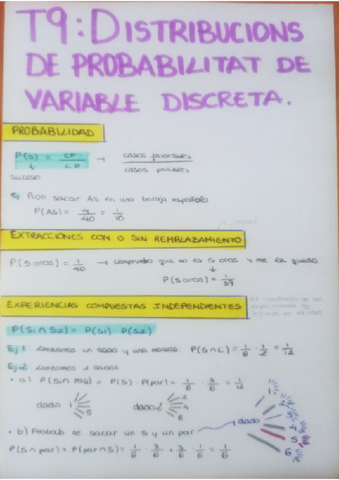 T9: DISTRIBUCIONS
DE PROBABILITAT DE
VARIABLE DISCRETA.
PROBABILIDAD
P(S) = CF / CP → casos favorables / casos posibles
suceso
Prob sacar AS en una baraja española
P(AS) = 4/40 = 1/10
EXTRACCIONES CON O SIN REMBLAZAMIENTO
P(5 oros) = 1/40 → compruebo que no es 5 oros y me la quedo
P(5 oros) = 1/39
EXPERIENCIAS COMPUESTAS INDEPENDIENTES
P(S1 ∩ S2) = P(S1) · P(S2)
Ej 1 Lanzamos un dado y una moneda: P(5 ∩ C) = 1/6 · 1/2 = 1/12
Ej 2 Lanzamos 2 dados
• a) P(5 ∩ par) = P(5) · P(par) = 1/6 · 3/6 = 1/12
dado 1
dado 2
• b) Probab de sacar un 5 y un par
1 dado
P(5 ∩ par) + P(par ∩ 5) = 1/6 · 3/6 + 3/6 · 1/6 = 1/6